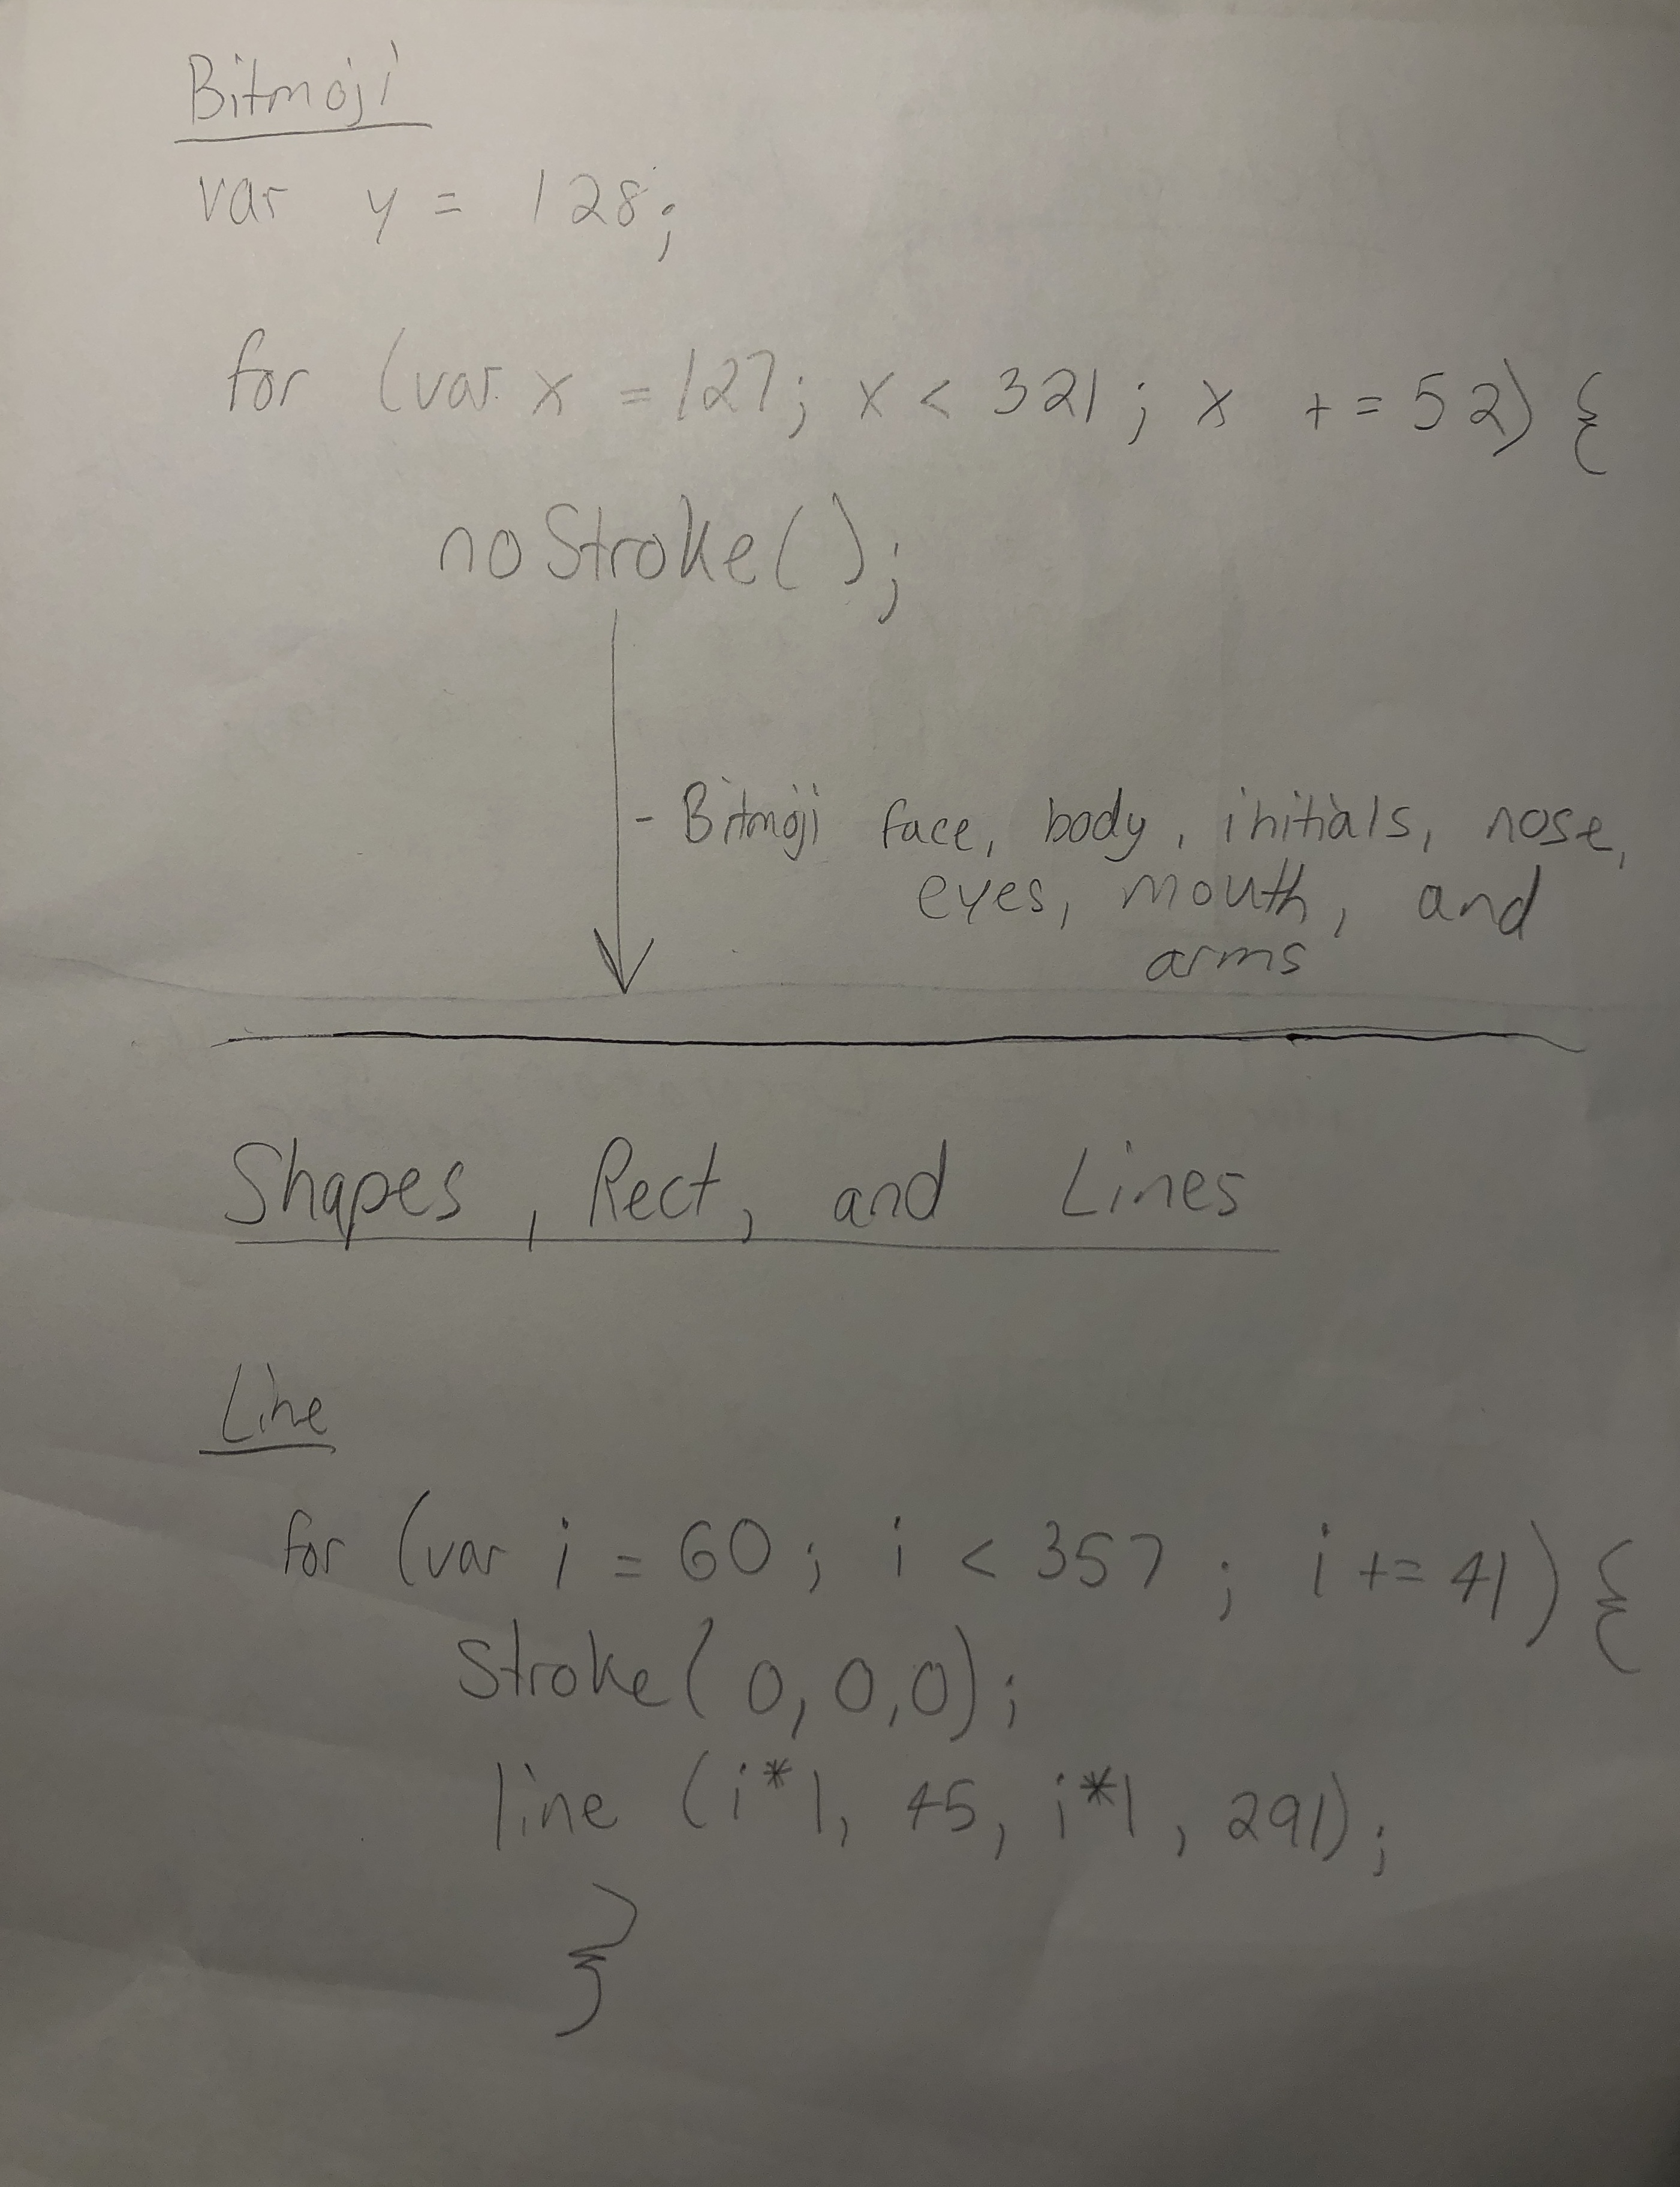 Bitmoji
var y = 128;
for (var x = 127; x < 321; x += 52) {
noStroke();
- Bitmoji face, body, initials, nose,
eyes, mouth, and
arms
Shapes, Rect, and Lines
Line
for (var i = 60; i < 357; i += 41) {
Stroke(0,0,0);
line (i*1, 45, i*1, 291);
}